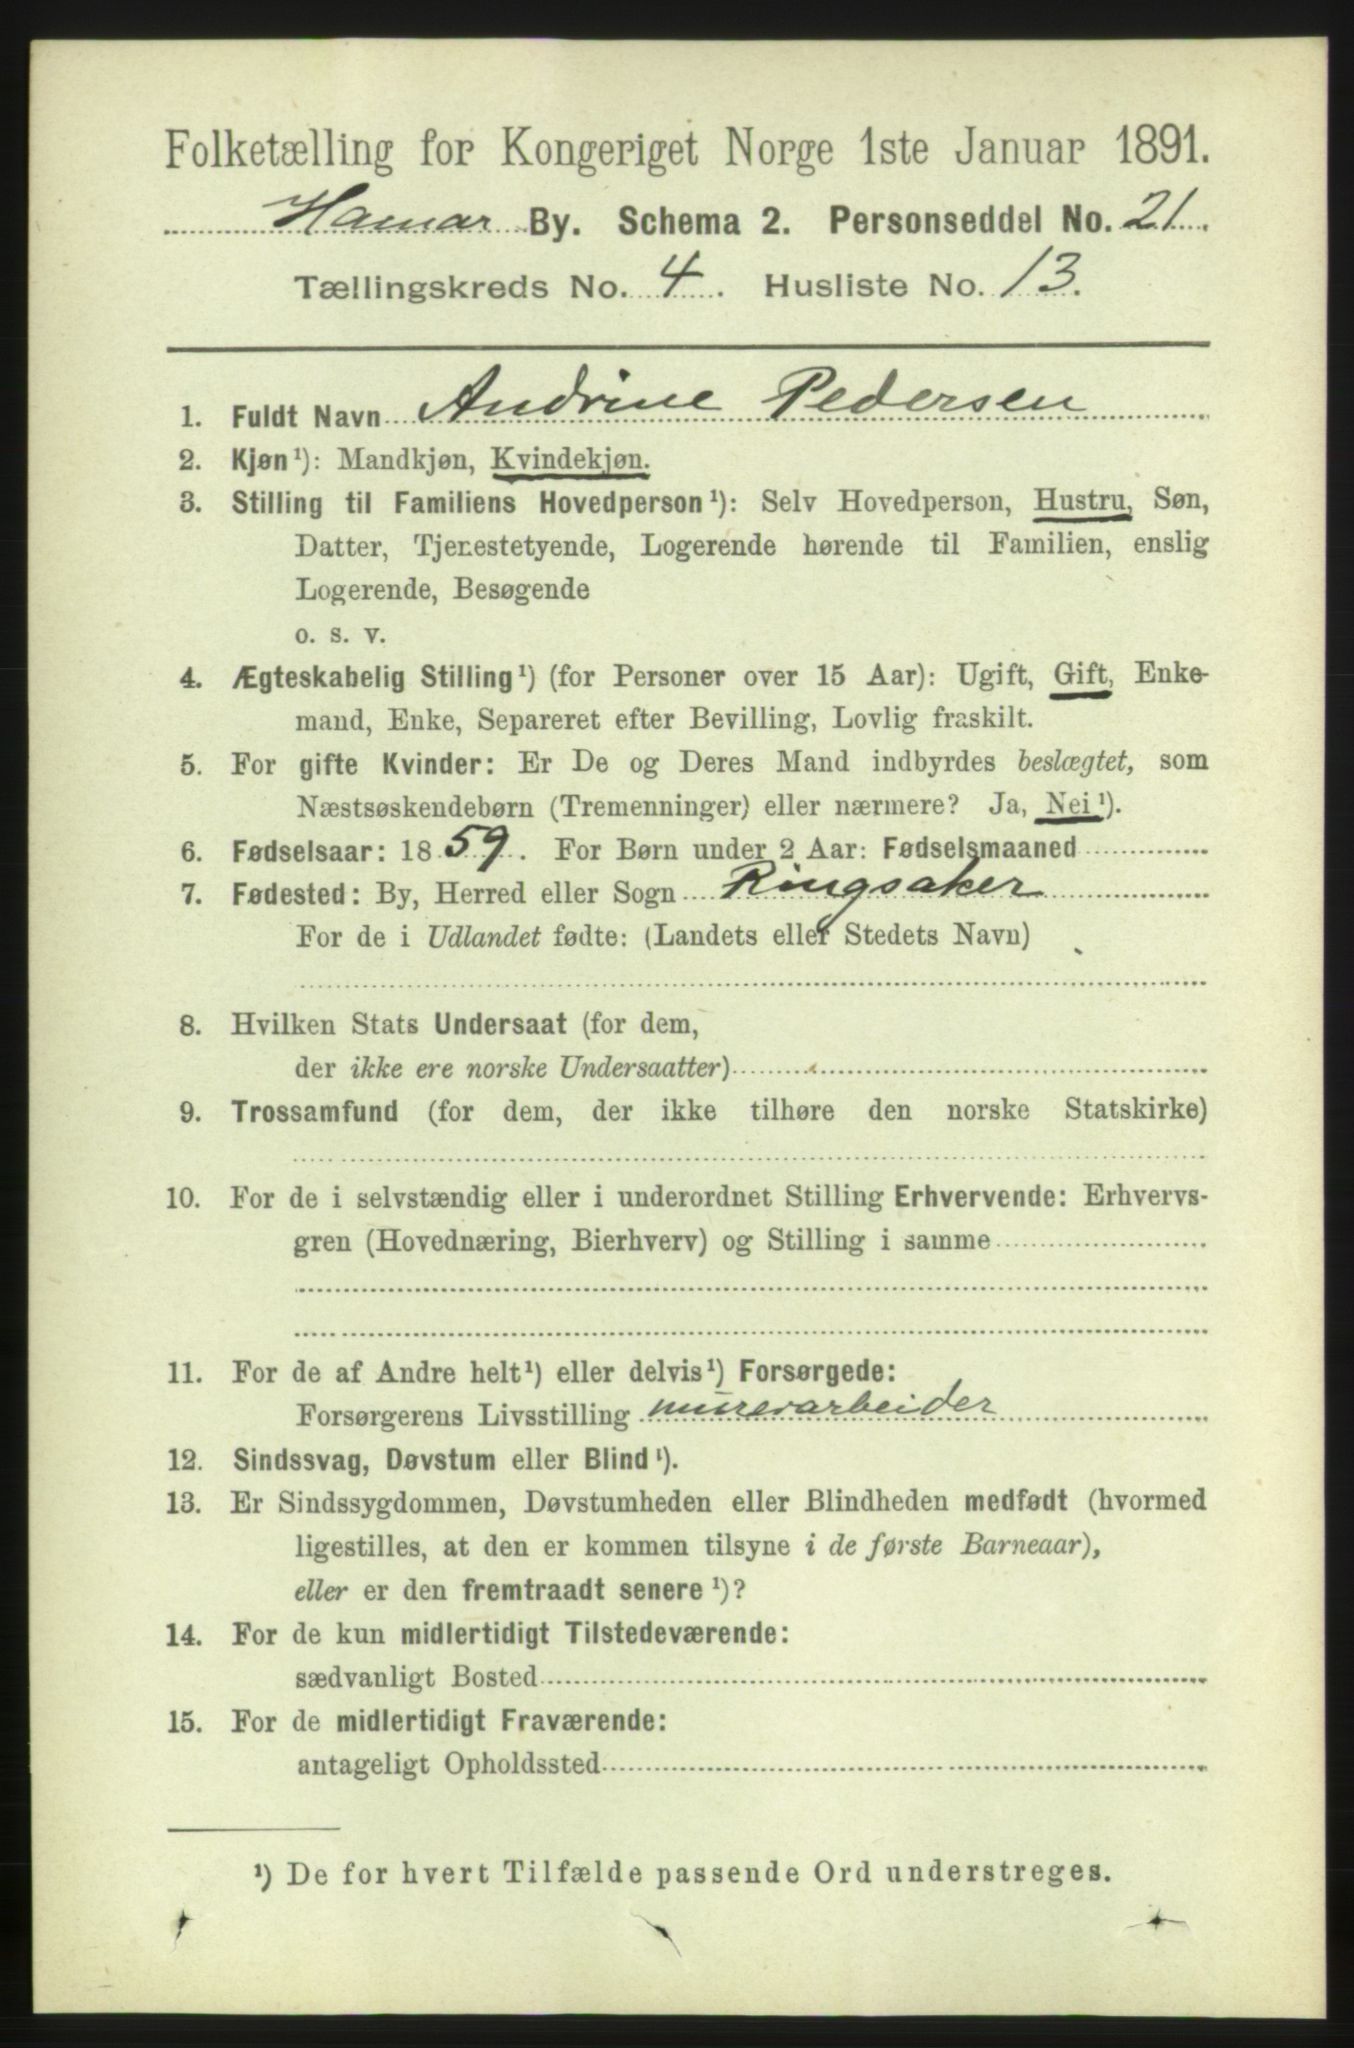 Folketælling for Kongeriget Norge 1ste Januar 1891.
Hamar By. Schema 2. Personseddel No. 21.
Tællingskreds No. 4. Husliste No. 13.
1. Fuldt Navn Andrine Pedersen
2. Kjøn¹): Mandkjøn, Kvindekjøn.
3. Stilling til Familiens Hovedperson¹): Selv Hovedperson, Hustru, Søn,
Datter, Tjenestetyende, Logerende hørende til Familien, enslig
Logerende, Besøgende
o. s. v.
4. Ægteskabelig Stilling¹) (for Personer over 15 Aar): Ugift, Gift, Enke-
mand, Enke, Separeret efter Bevilling, Lovlig fraskilt.
5. For gifte Kvinder: Er De og Deres Mand indbyrdes beslægtet, som
Næstsøskendebørn (Tremenninger) eller nærmere? Ja, Nei¹).
6. Fødselsaar: 1859. For Børn under 2 Aar: Fødselsmaaned
7. Fødested: By, Herred eller Sogn Ringsaker
For de i Udlandet fødte: (Landets eller Stedets Navn)
8. Hvilken Stats Undersaat (for dem,
der ikke ere norske Undersaatter)
9. Trossamfund (for dem, der ikke tilhøre den norske Statskirke)
10. For de i selvstændig eller i underordnet Stilling Erhvervende: Erhvervs-
gren (Hovednæring, Bierhverv) og Stilling i samme
11. For de af Andre helt¹) eller delvis¹) Forsørgede:
Forsørgerens Livsstilling murerarbeider
12. Sindssvag, Døvstum eller Blind¹).
13. Er Sindssygdommen, Døvstumheden eller Blindheden medfødt (hvormed
ligestilles, at den er kommen tilsyne i de første Barneaar),
eller er den fremtraadt senere¹)?
14. For de kun midlertidigt Tilstedeværende:
sædvanligt Bosted
15. For de midlertidigt Fraværende:
antageligt Opholdssted
¹) De for hvert Tilfælde passende Ord understreges.